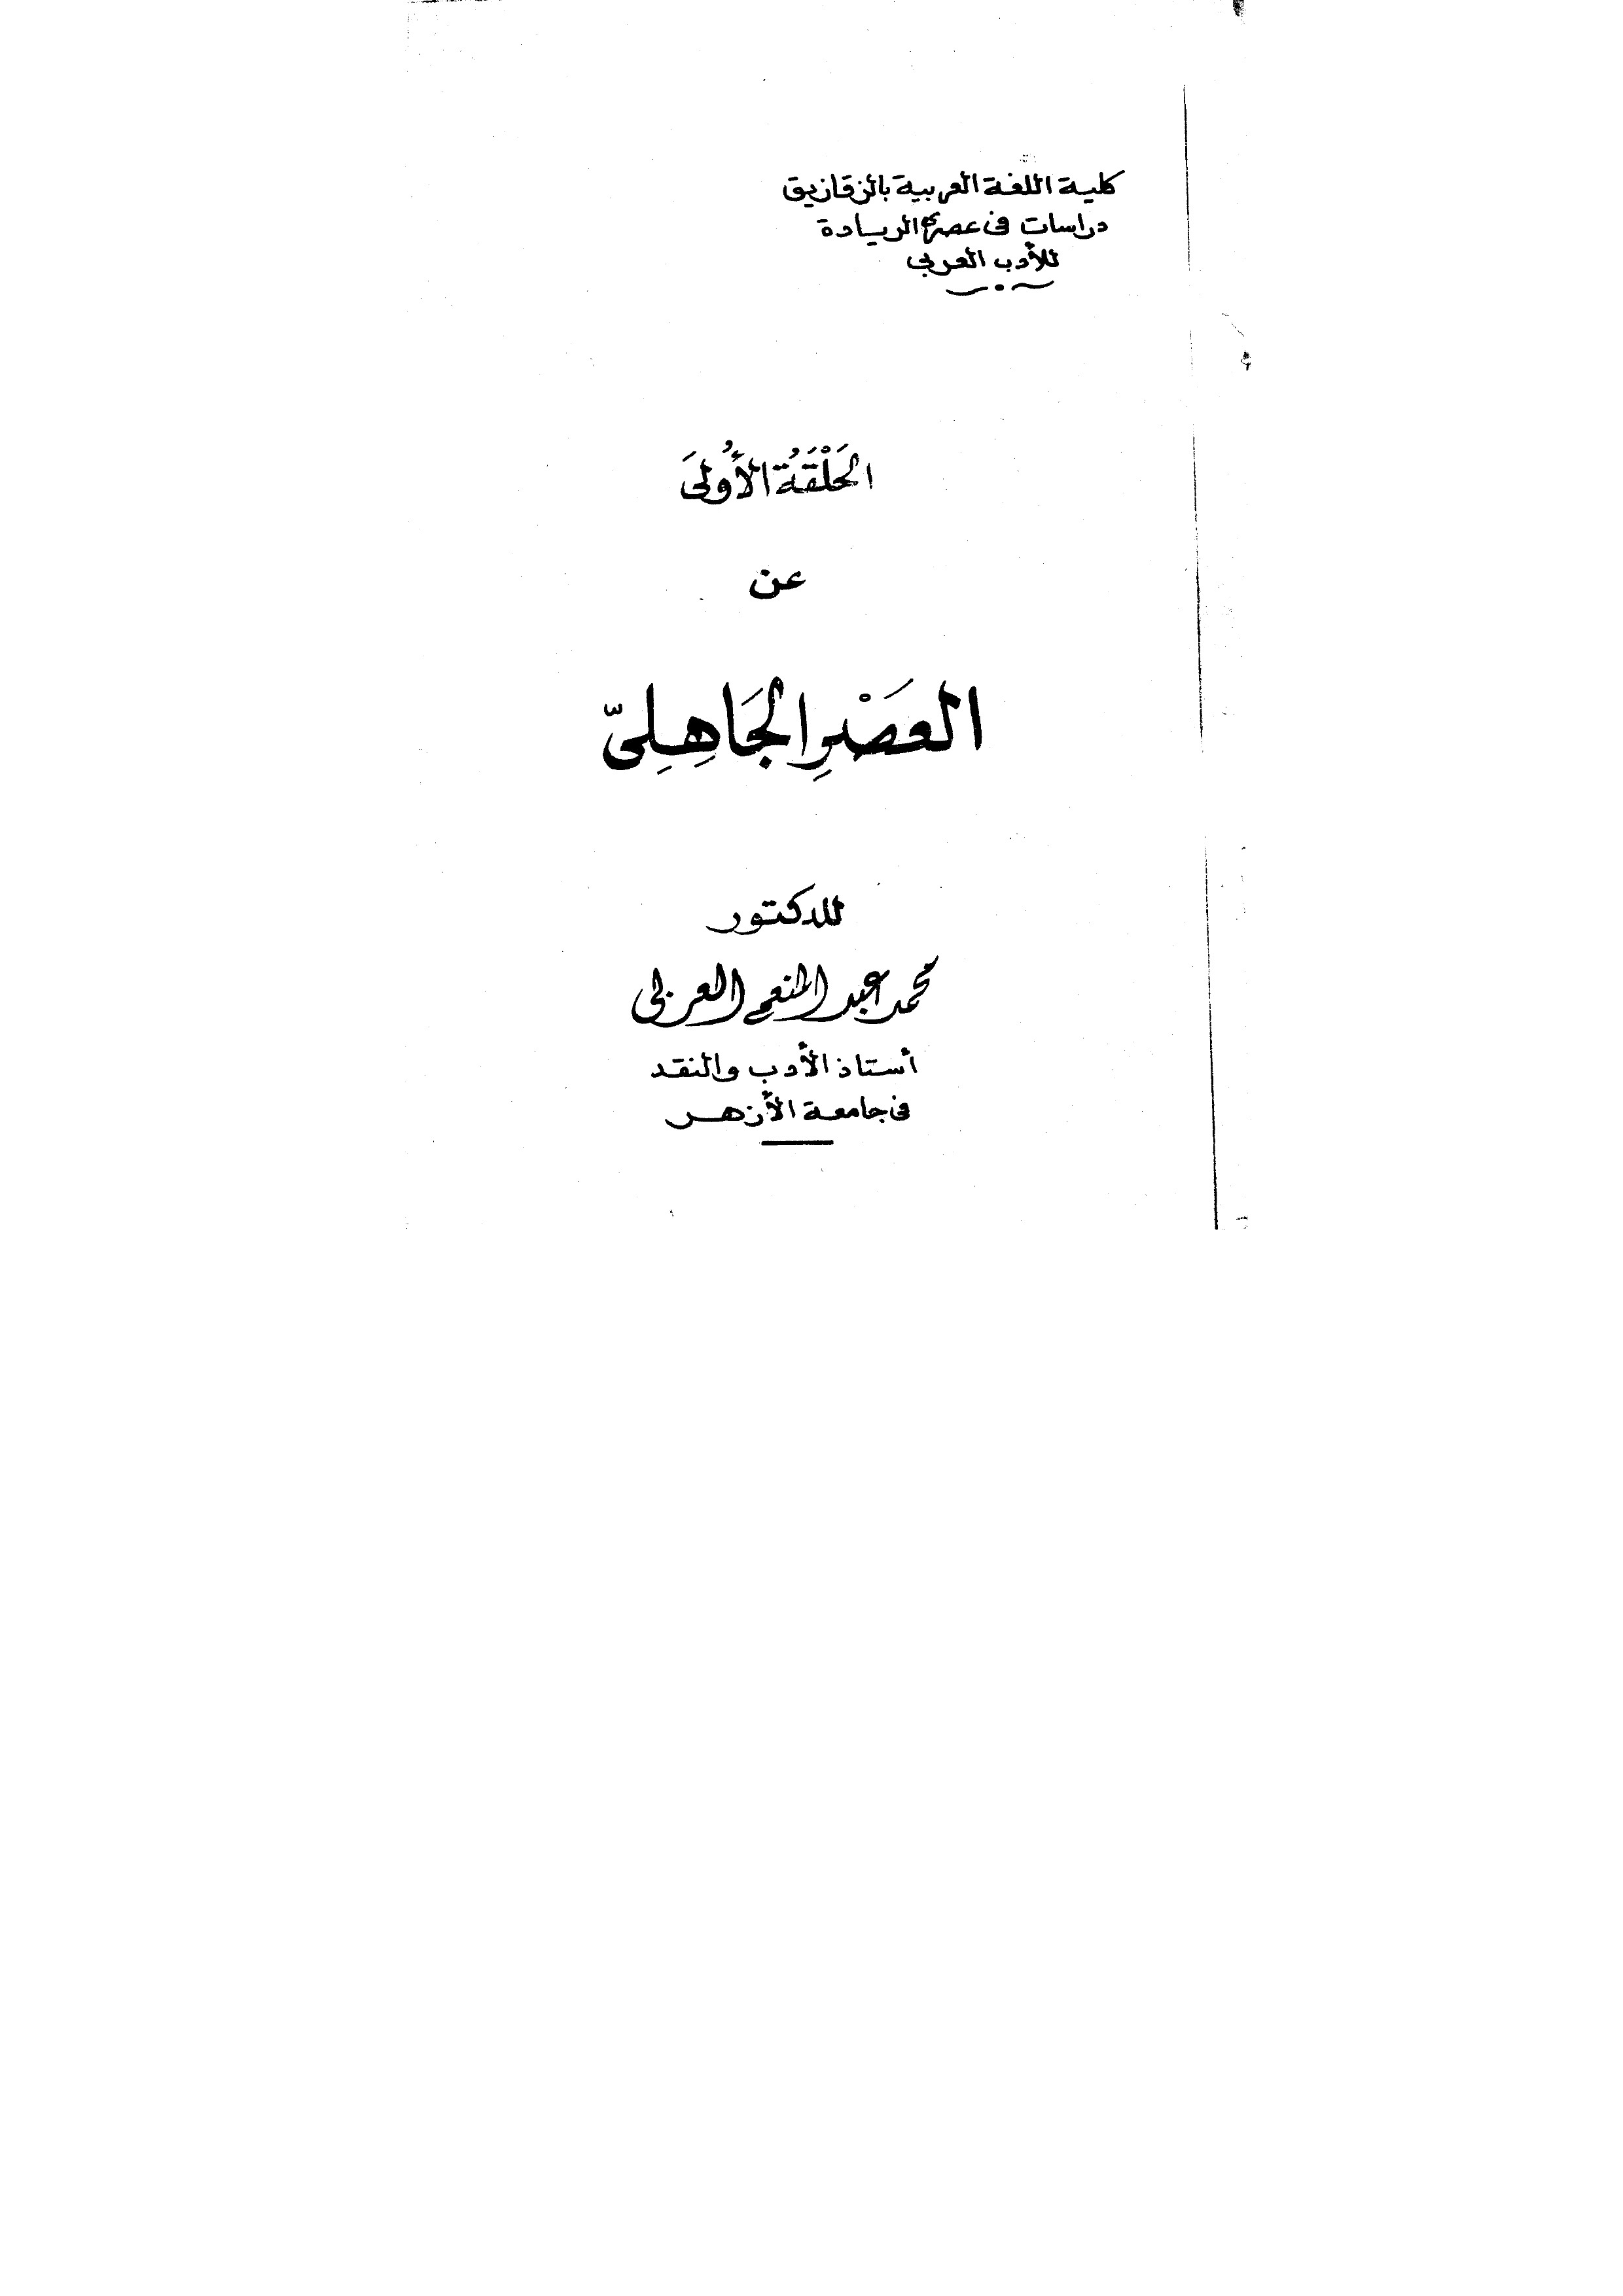 كلية اللغة العربية بالزقازيق
دراسات فى عصرى الريادة
للأدب العربى
الحَلْقَةُ الأُولىَ
عن
العصَْرِ الجَاهِلِىّ
للدكتور
محمد عبد المنعم العربى
أستاذ الأدب والنقد
فى جامعة الأزهر